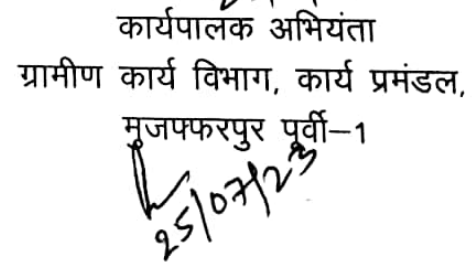 कार्यपालक अभियंता
ग्रामीण कार्य विभाग, कार्य प्रमंडल,
मुजफ्फरपुर पूर्वी–1
25/07/23